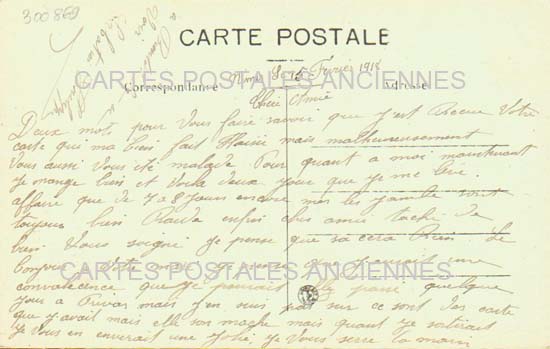 300 869
CARTE POSTALE
CARTES POSTALES ANCIENNES
Correspondance
Adresse
Le 15 Fevrier 1918
Chere Amie
Deux mots pour vous faire savoir que j'est Recue Votre
carte qui ma bien fait Plaisir mais malheureusement
Vous aussi vous été malade Pour quant a moi maintenant
Je mange bien et voila deux jour que je me lève
affaire que de 7 a 8 Jours encore mes les jambe sont
toujour bien Raide enfin chere amie taché de
bien Vous soigné Je pense que sa cera Rien Le
Bonjour
CARTES POSTALES ANCIENNES
convalecence que je pourrait passé quelque
jour a Privas mais j'en suis pas sur ce sont des carte
que j'avait mais elle son moche mais quant je sortirait
Je Vous en enverait une Jolie Je Vous serre la main